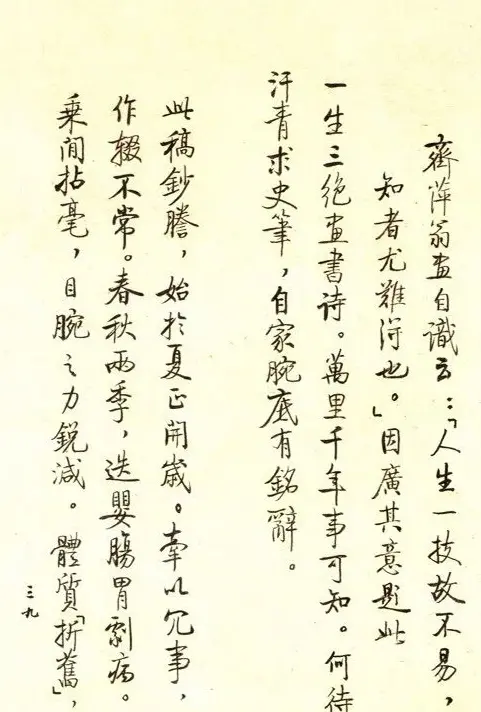 齊萍翁畫自識云：「人生一技故不易，
知者尤難得也。」因廣其意題此
一生三絕畫書诗。萬里千年事可知。何待
汗青求史筆，自家腕底有銘辭。
此稿鈔謄，始於夏正開歲。牽以冗事，
作輟不常。春秋兩季，迭嬰腸胃劇病。
乘间拈毫，目腕之力銳減。體質「折舊」，
三九